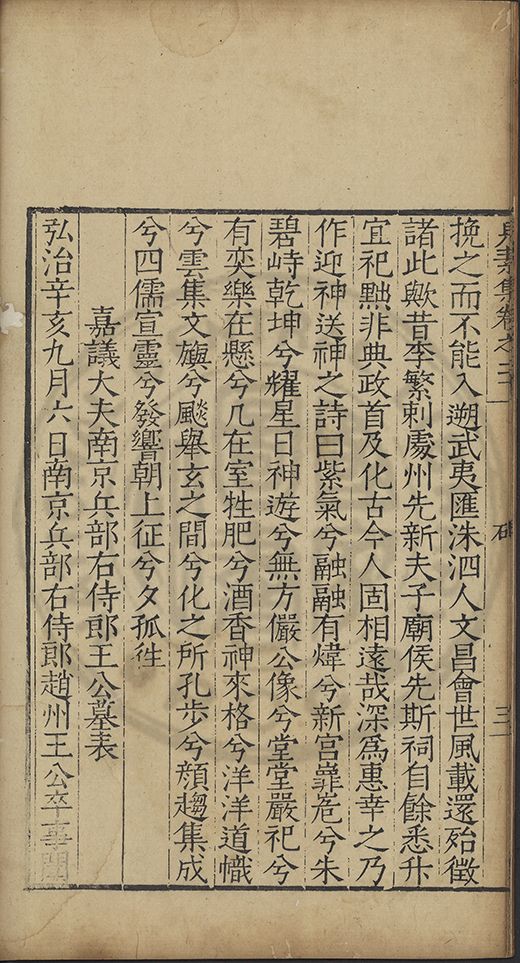 見素集卷之二十 碑 三
挽之而不能入遡武夷匯洙泗人文昌會世風載還殆徵
諸此歟昔李繁刺處州先新夫子廟侯先斯祠自餘悉升
宜祀黜非典政首及化古今人固相遠哉深爲惠幸之乃
作迎神送神之詩曰紫氣兮融融有煒兮新宮巃嵸兮朱
碧峙乾坤兮耀星日神遊兮無方儼公像兮堂堂嚴祀兮
有奕樂在懸兮几在室牲肥兮酒香神來格兮洋洋道幟
兮雲集文旟兮颷舉玄之間兮化之所孔步兮顏趨集成
兮四儒宣靈兮發響朝上征兮夕孤徃
嘉議大夫南京兵部右侍郎王公墓表
弘治辛亥九月六日南京兵部右侍郎趙州王公卒事聞